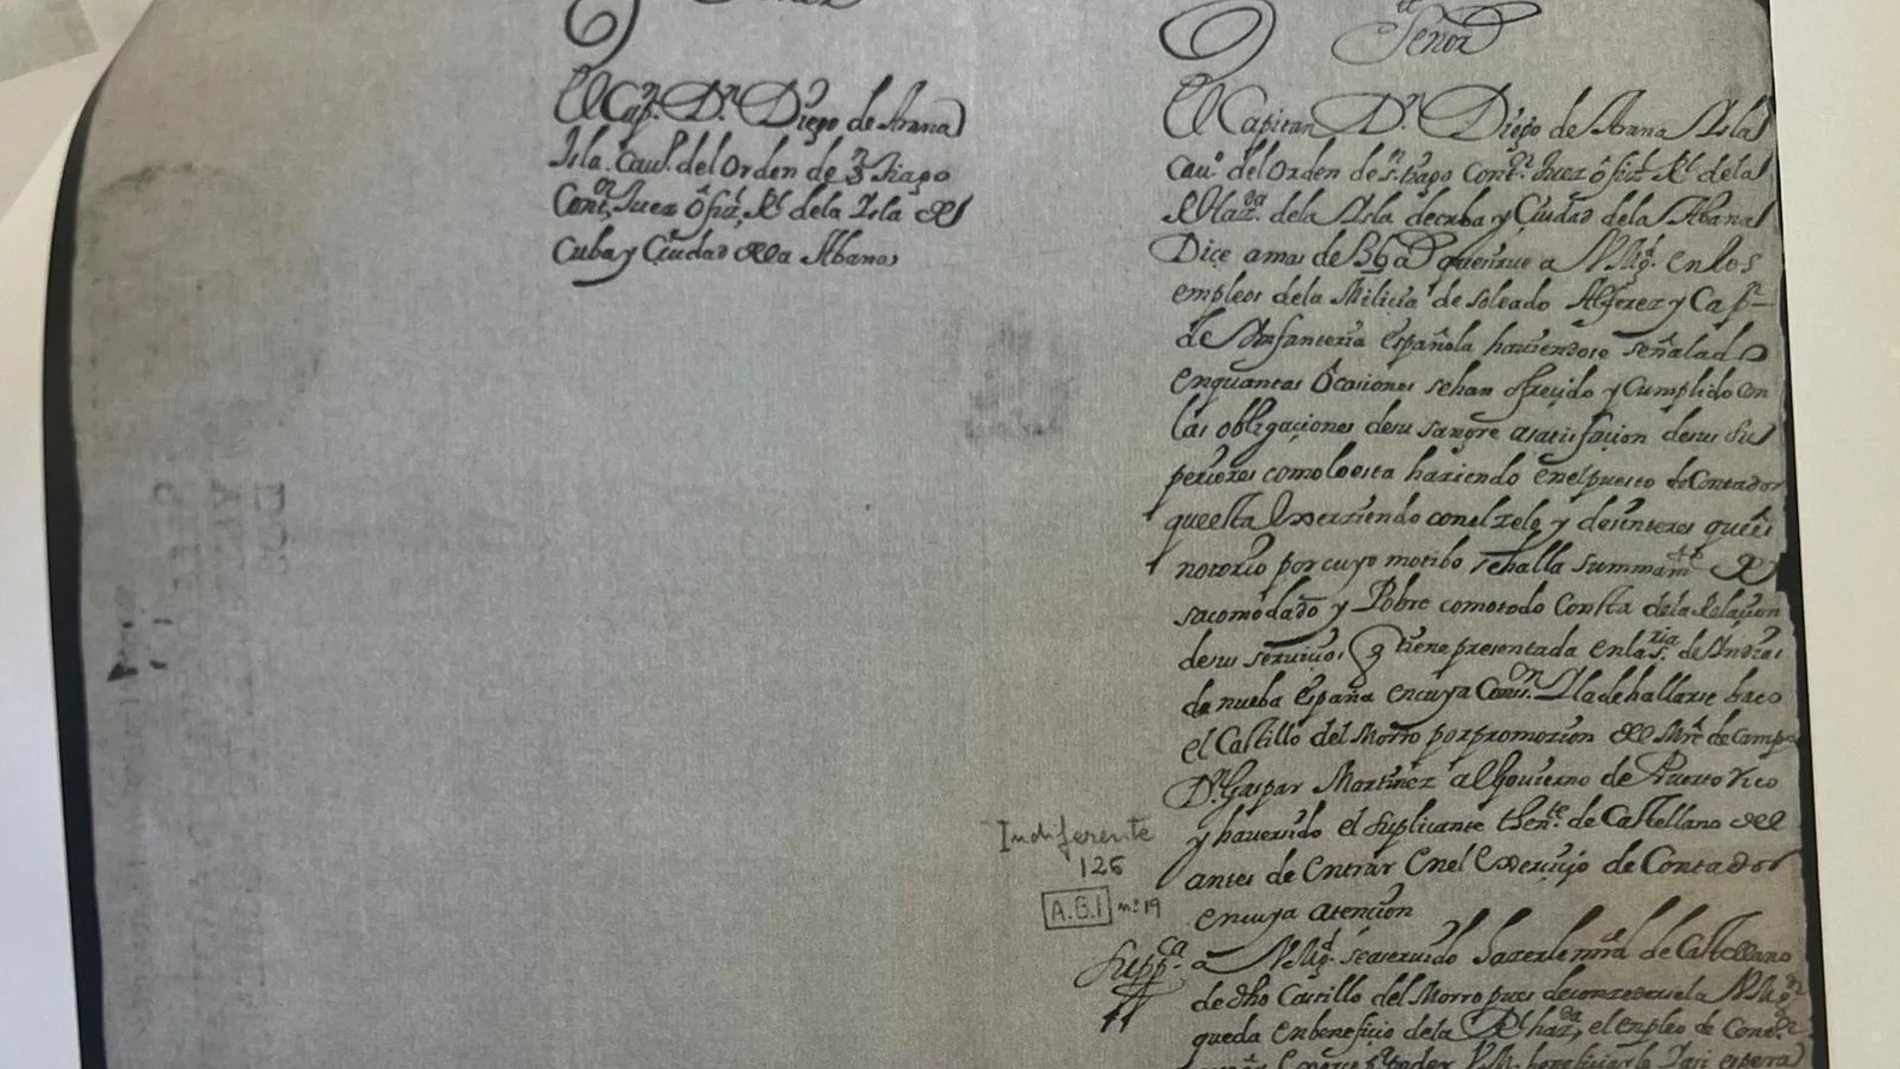 Señor
El Cap.n D.n Diego de Arana
Isla. Caul. del Orden de S.n Tiago
Cont.or Juez ôfiz.l R.l dela Isla del
Cuba y Ciudad dela Abana
Señor
El Capitan D.n Diego de Arana Isla
Cau.o del Orden de s.n tiago Cont.or Juez ôfiz.l R.l dela
R.l Haz.da dela Isla decuba y Ciudad dela Abana
Dice amas de 36 a.s que sirue a V Mg.d en los
empleos dela Milicia de soldado Alferez y Cap.n
de Infanteria española hauiendose señalado
enquantas Ôcasiones sehan ofrecido y Cumplido con
las obligaçiones desu sangre asatisfacion desus Su
periores comoloesta haziendo enelpuesto deContador
queesta Exerziendo conelzelo y desinteres queês
notorio por cuyo motibo sehalla summam.te De
sacomodado y Pobre comotodo Consta dela Relaçion
desus seruiçios q tiene presentada enlas.ria de Indias
de nueba España encuya Cons.on Iladehallarse baco
el Castillo del Morro por promozion del M.re de Campo
D.n Gaspar Martinez alGouierno de Puerto Rico
y hauersido el Suplicante then.te de Castellano del
antes de Entrar Enel Exerçiçio de Contador
encuya atencion
Indiferente
126
A.G.I nº 19
Supp.ca a V Mg.d seaseruido hazerle mrd de Castellano
de dho Castillo del Morro pues
queda enbeneficio dela R.l haz.da, el enpleo de Cont.or
poder V.M. beneficiarle